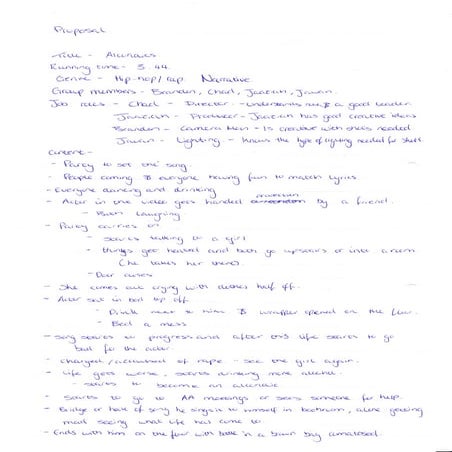 Proposal
Title - Alcoholics
Running time - 3.44.
Genre - Hip-hop/rap. Narrative
Group members - Brandon, Chad, Jason, Jawan.
Job roles - Chad - Director - understands us & a good leader
Producer - has good creative ideas
Brandon - Camera Man - Is creative with shots needed
Jawan - Lighting - Knows the type of lighting needed for shots
- Party to set the song.
- People coming & everyone having fun to match lyrics.
- Everyone dancing and drinking
- Actor in the video gets handed protection by a friend.
- Both laughing.
- Party carries on
- Starts talking to a girl
- things get heated and both go upstairs or into a room
(he takes her there).
- Door closes
- She comes out crying with clothes half off.
- Actor sat in bed top off
- Drink next to him & wrapper opened on the floor.
- Bed a mess
- Song starts to progress and after this life starts to go
bad for the actor
- Charged/accused of rape. - See the girl again.
- Life gets worse, starts drinking more alcohol.
- starts to become an alcoholic
- Starts to go to AA meetings or sees someone for help.
- Bridge or half of song he sings it to himself in bathroom, alone getting
mad seeing what life has come to
- Ends with him on the floor with bottle in a brown bag